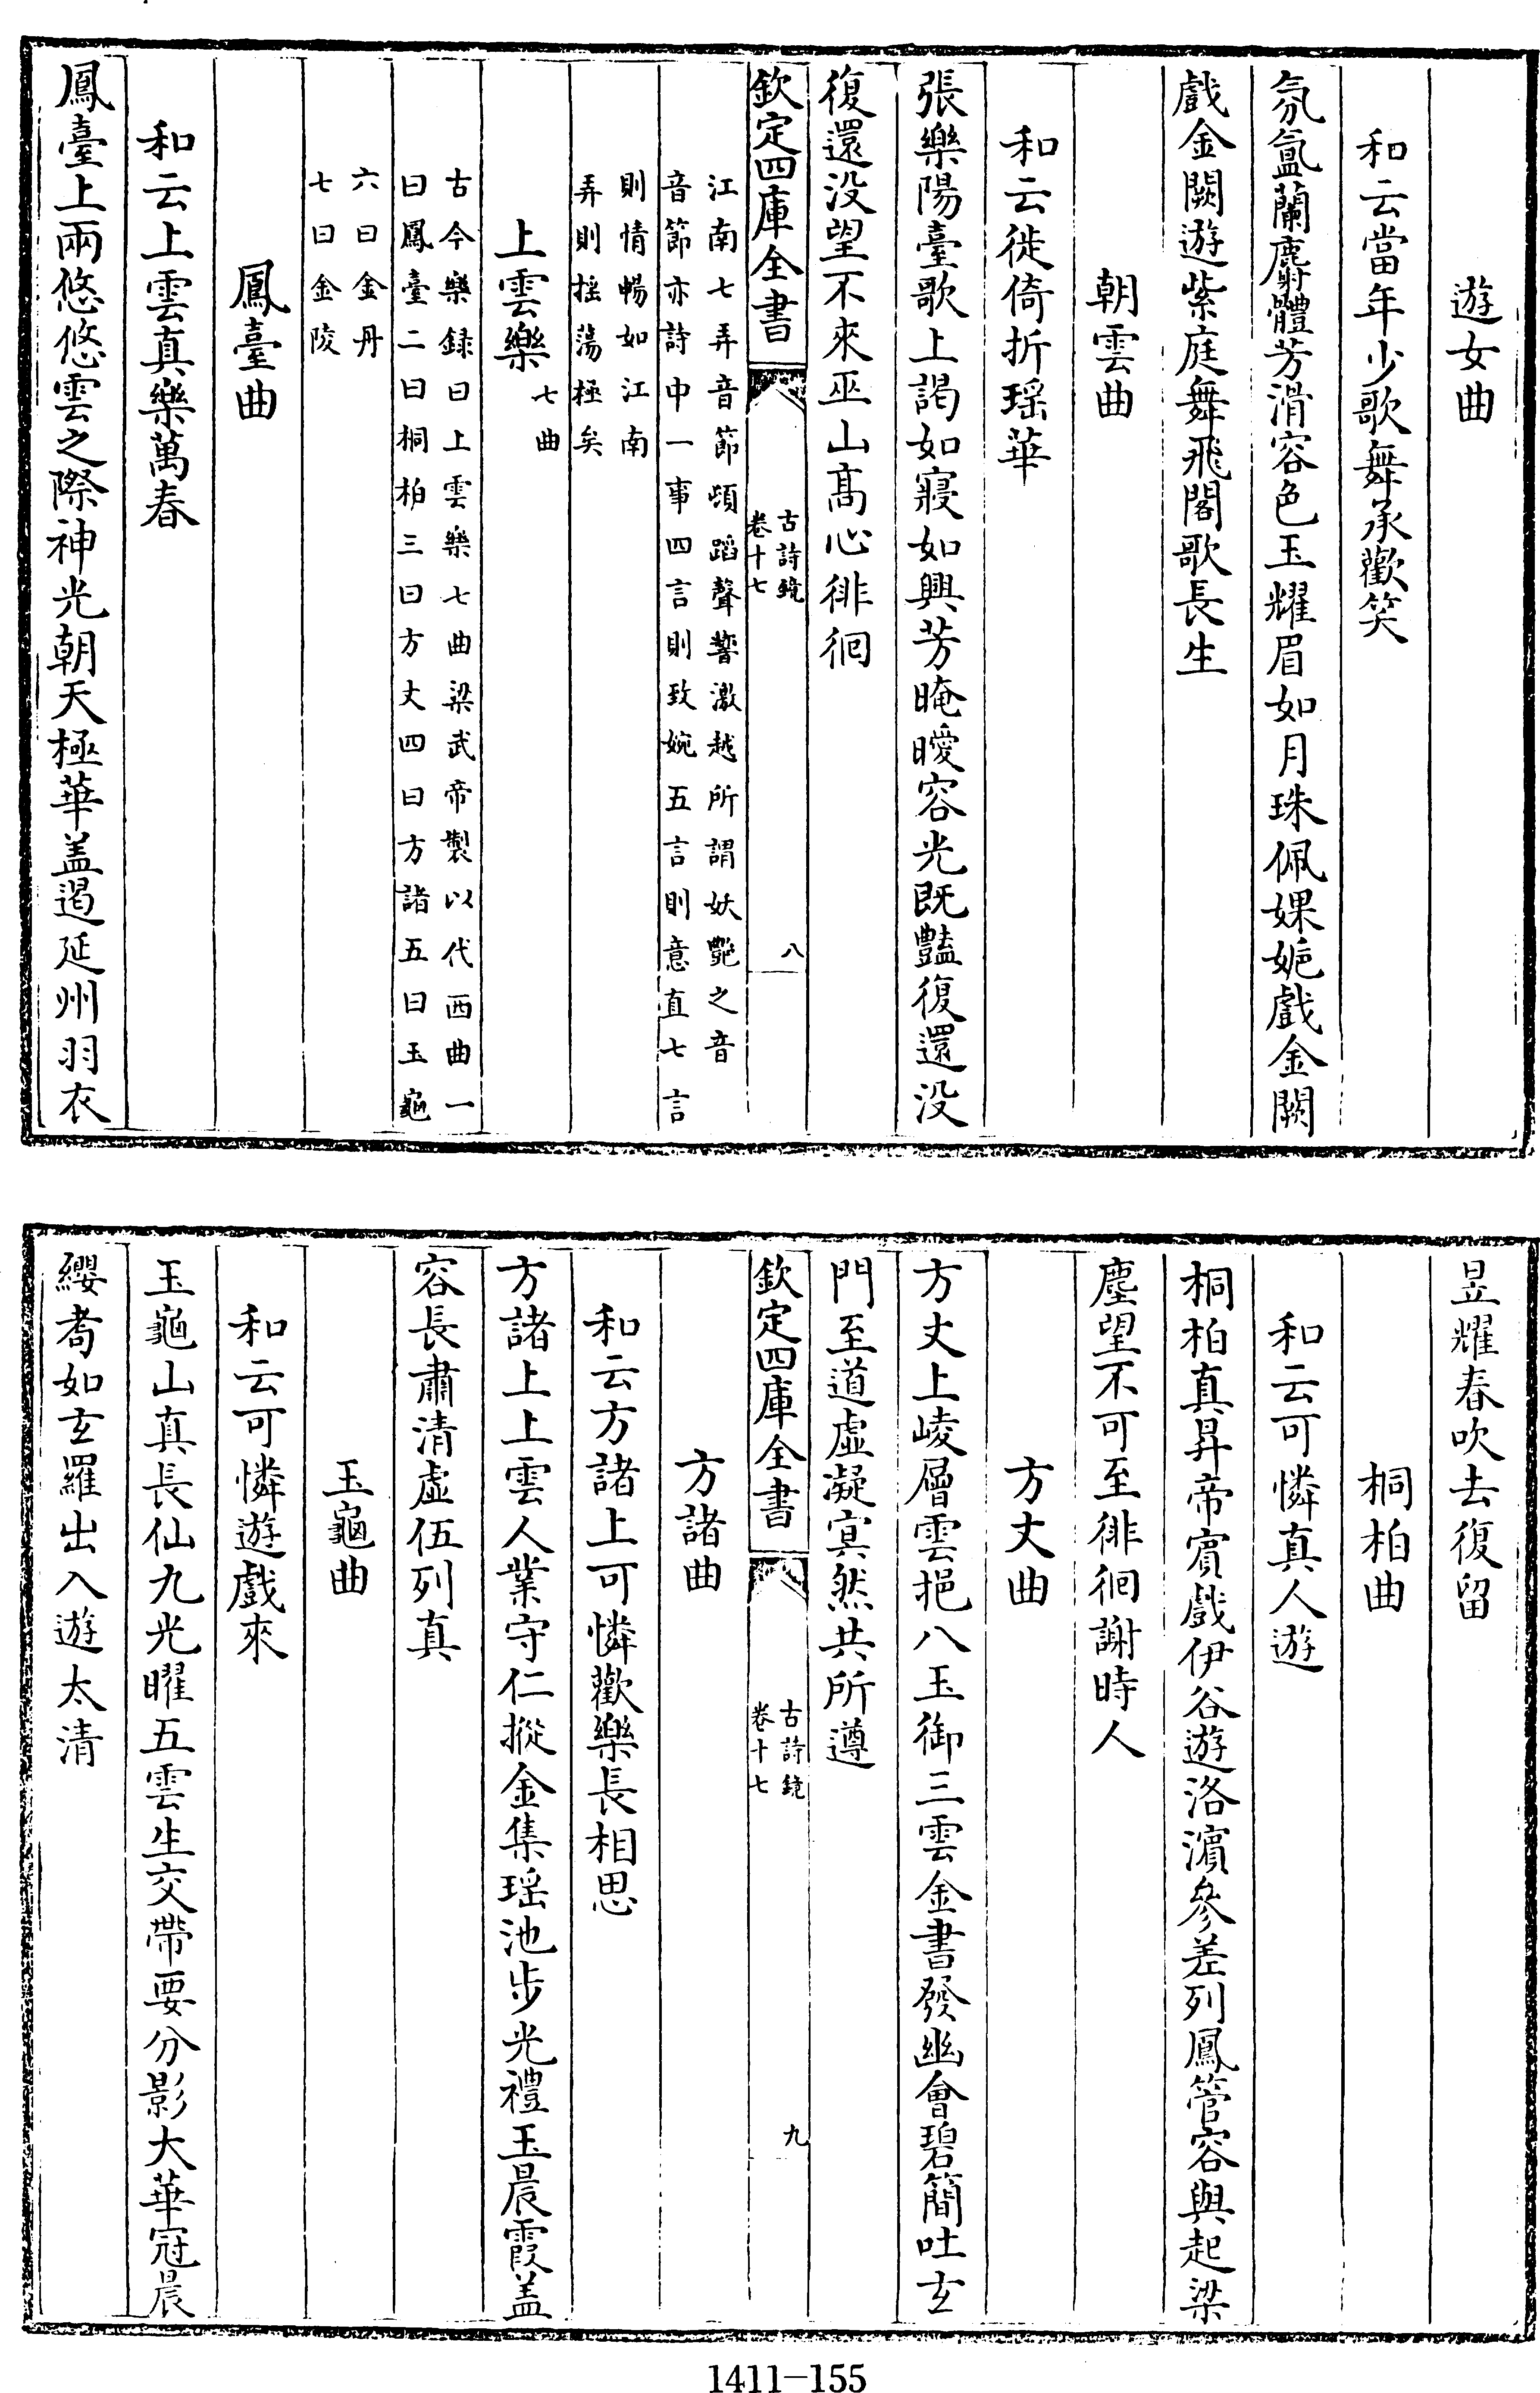 遊女曲
和云當年少歌舞承歡笑
氛氲蘭麝體芳滑容色玉耀眉如月珠佩婐㛂戲金闕
戲金闕遊紫庭舞飛閣歌長生
朝雲曲
和云徙倚折瑶華
張樂陽臺歌上謁如寢如興芳晻曖容光既豔復還没
復還没望不來巫山髙心徘徊
欽定四庫全書
古詩鏡
卷十七
八
江南七弄音節頓蹈聲響激越所謂妖艷之音
音節亦詩中一事四言則致婉五言則意直七言
則情暢如江南
弄則揺蕩極矣
上雲樂七曲
古今樂録曰上雲樂七曲梁武帝製以代西曲一
曰鳳臺二曰桐柏三曰方丈四曰方諸五曰玉龜
六曰金丹
七曰金陵
鳳臺曲
和云上雲真樂萬春
鳳臺上兩悠悠雲之際神光朝天極華盖遏延州羽衣
昱耀春吹去復留
桐柏曲
和云可憐真人遊
桐柏真昇帝賔戲伊谷遊洛濵參差列鳳管容與起梁
塵望不可至徘徊謝時人
方丈曲
方丈上崚層雲挹八玉御三雲金書發幽會碧簡吐玄
門至道虚凝冥然共所遵
欽定四庫全書
古詩鏡
卷十七
九
方諸曲
和云方諸上可憐歡樂長相思
方諸上上雲人業守仁摐金集瑶池步光禮玉晨霞盖
容長肅清虚伍列真
玉龜曲
和云可憐遊戲來
玉龜山真長仙九光曜五雲生交帶要分影大華冠晨
纓耉如玄羅出入遊太清
1411-155